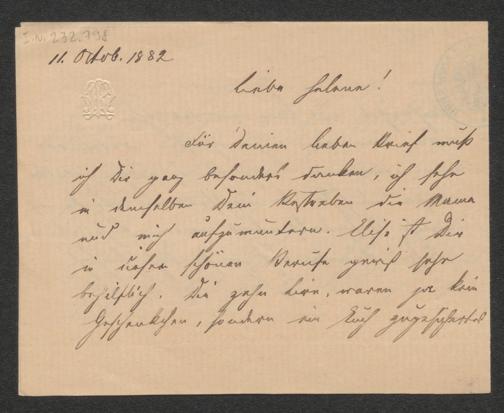 I.N. 232.798
11. Octob. 1882
Liebe Helene!
Für Deinen lieben Brief muß
ich Dir ganz besonders danken, ich sehe
in demselben Dein Bestreben die Mama
und mich aufzumuntern. Elise ist Dir
in diesem schönen Berufe gewiß sehr
behilflich. Die zehn Lire, waren ja kein
Geschenkchen, sondern ein Euch